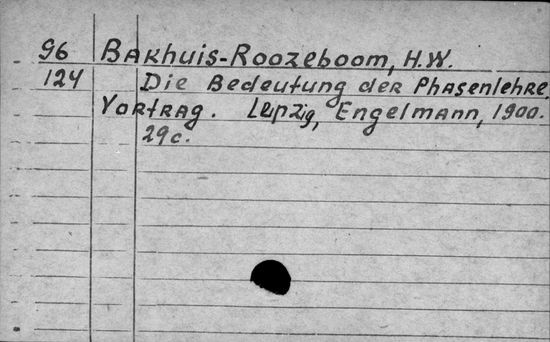 96 Bakhuis-Roozeboom, H.W.
124 Die Bedeutung der Phasenlehre
Vortrag. Leipzig, Engelmann, 1900.
29c.